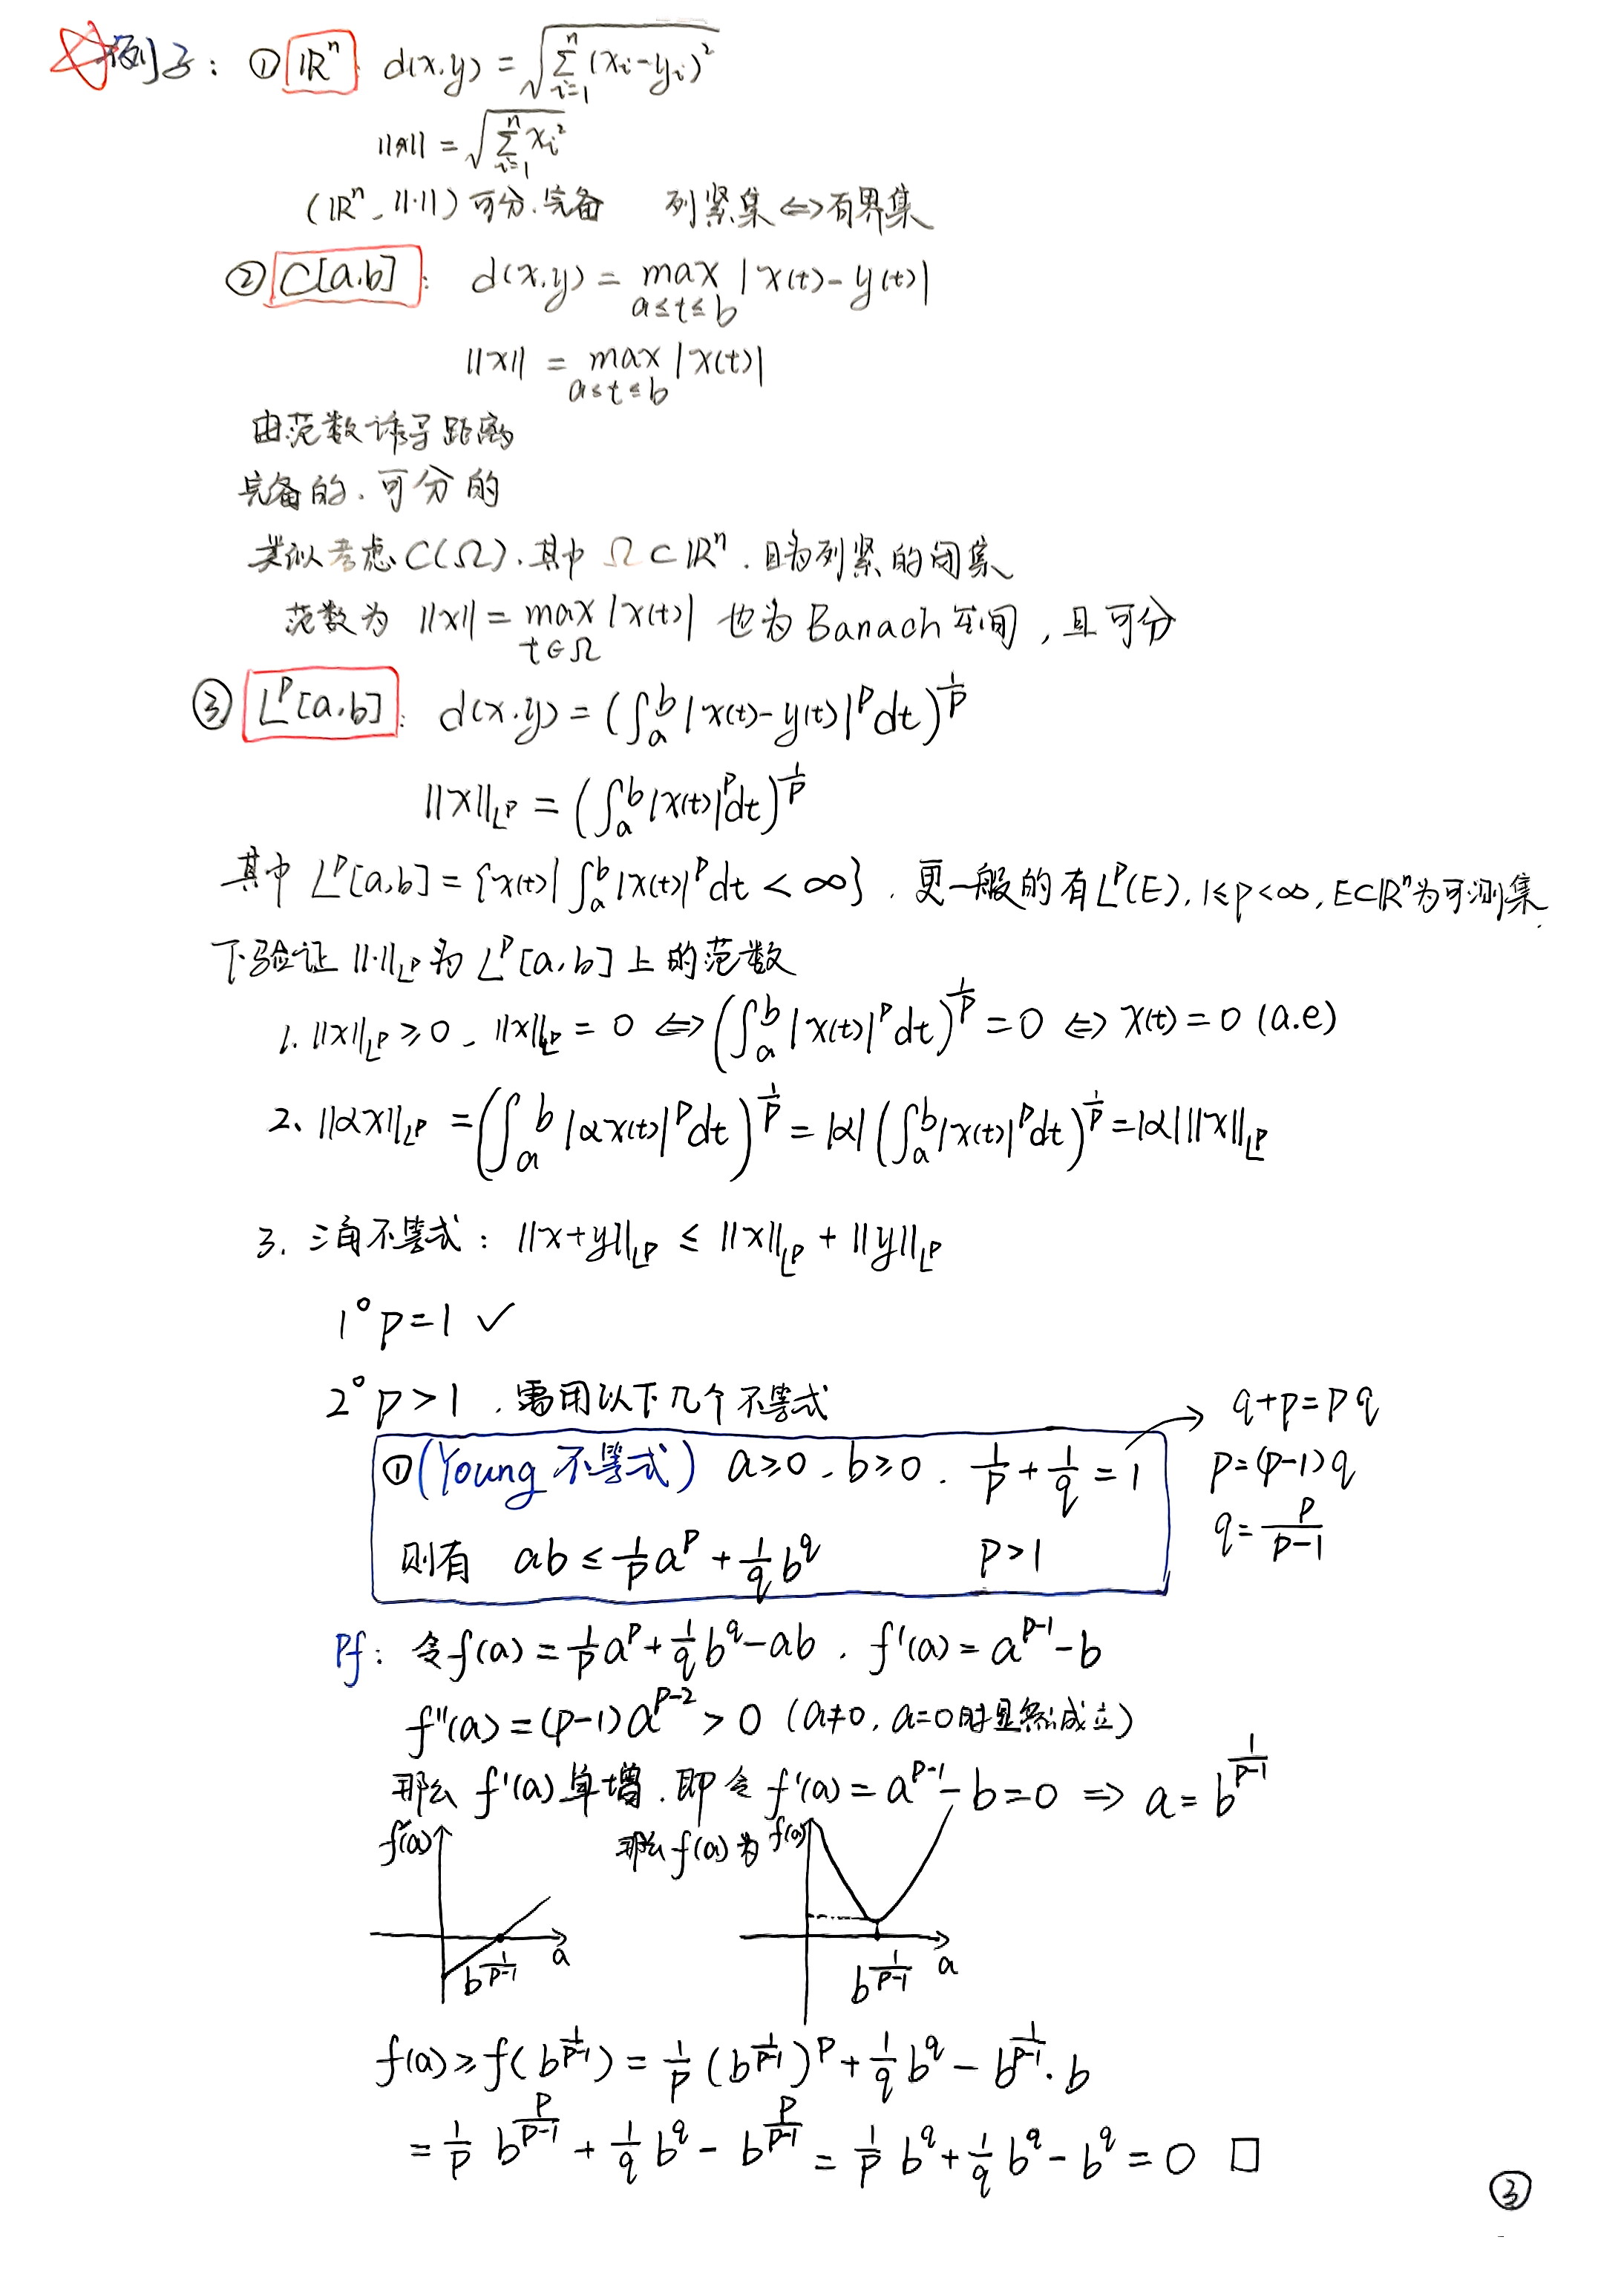 ☆例子：① ℝⁿ： d(x,y) = √(∑_{i=1}^{n} (x_i−y_i)²)
||x|| = √(∑_{i=1}^{n} x_i²)
(ℝⁿ, ||·||) 可分、完备 列紧集⇔有界集
② C[a,b]： d(x,y) = max_{a≤t≤b} |x(t)−y(t)|
||x|| = max_{a≤t≤b} |x(t)|
由范数诱导距离
完备的、可分的
类似考虑C(Ω)，其中 Ω⊂ℝⁿ，且为列紧的闭集
范数为 ||x|| = max_{t∈Ω} |x(t)| 也为Banach空间，且可分
③ L^p[a,b]： d(x,y) = (∫_a^b |x(t)−y(t)|^p dt)^{1/p}
||x||_{L^p} = (∫_a^b |x(t)|^p dt)^{1/p}
其中 L^p[a,b] = {x(t) | ∫_a^b |x(t)|^p dt < ∞}，更一般的有L^p(E), 1≤p<∞, E⊂ℝⁿ为可测集.
下验证 ||·||_{L^p}为 L^p[a,b] 上的范数
1. ||x||_{L^p} ≥ 0, ||x||_{L^p} = 0 ⇔ (∫_a^b |x(t)|^p dt)^{1/p} = 0 ⇔ x(t) = 0 (a.e)
2. ||αx||_{L^p} = (∫_a^b |αx(t)|^p dt)^{1/p} = |α| (∫_a^b |x(t)|^p dt)^{1/p} = |α| ||x||_{L^p}
3. 三角不等式：||x+y||_{L^p} ≤ ||x||_{L^p} + ||y||_{L^p}
1° p=1 ✓
2° p>1，需用以下几个不等式
①(Young 不等式) a≥0, b≥0. 1/p + 1/q = 1 → q+p=pq
p=(p−1)q
则有 ab ≤ (1/p)a^p + (1/q)b^q p>1
q = p/(p−1)
Pf：令f(a) = (1/p)a^p + (1/q)b^q − ab， f'(a) = a^{p−1} − b
f''(a) = (p−1)a^{p−2} > 0 (a≠0, a=0时显然成立)
那么 f'(a) 单增，即令 f'(a) = a^{p−1} − b = 0 ⇒ a = b^{1/(p−1)}
f'(a) 那么f(a)为 f(a)
a a
b^{1/(p−1)} b^{1/(p−1)}
f(a) ≥ f(b^{1/(p−1)}) = (1/p)(b^{1/(p−1)})^p + (1/q)b^q − b^{1/(p−1)}·b
= (1/p) b^{p/(p−1)} + (1/q) b^q − b^{p/(p−1)} = (1/p) b^q + (1/q) b^q − b^q = 0 □
③